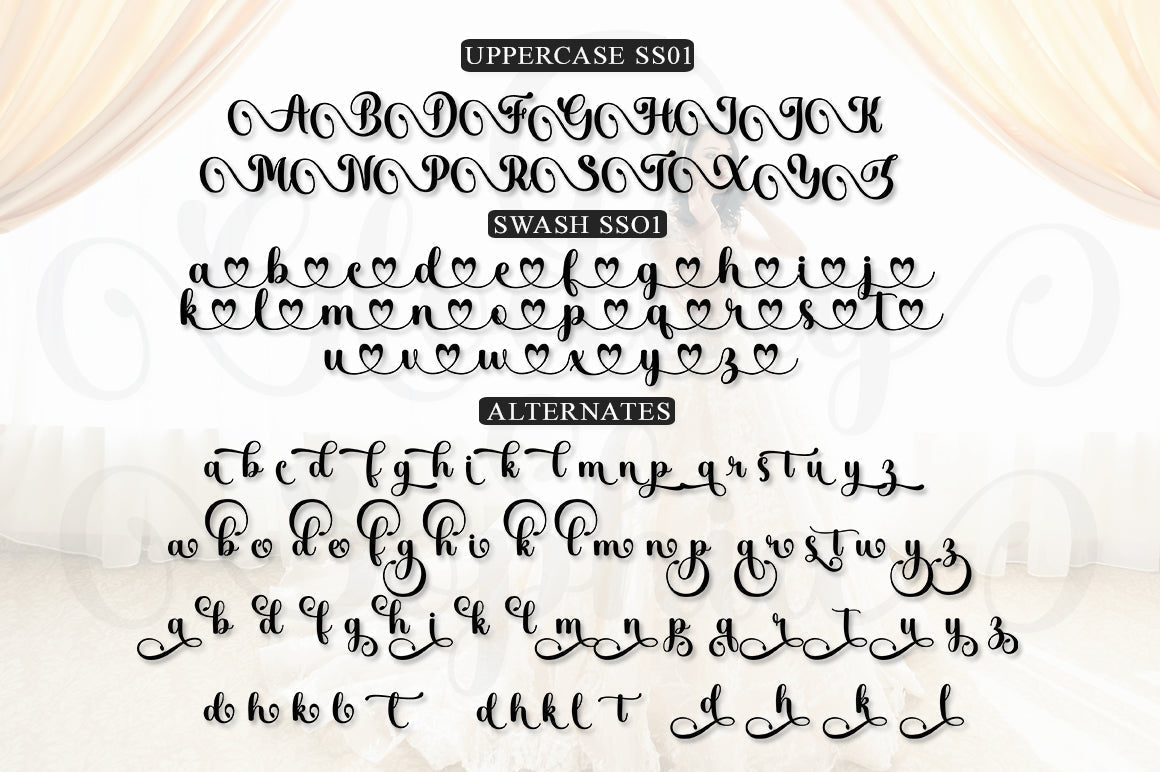 UPPERCASE SS01
A B D F G H I J K
M N P R S T X Y Z
SWASH SSO1
a b c d e f g h i j
k l m n o p q r s t
u v w x y z
ALTERNATES
a b c d f g h i k l m n p q r s t u y z
a b c d e f g h i k l m n p q r s t u y z
a b d f g h i k l m n p q r t u y z
d h k l t d h k l t d h k l